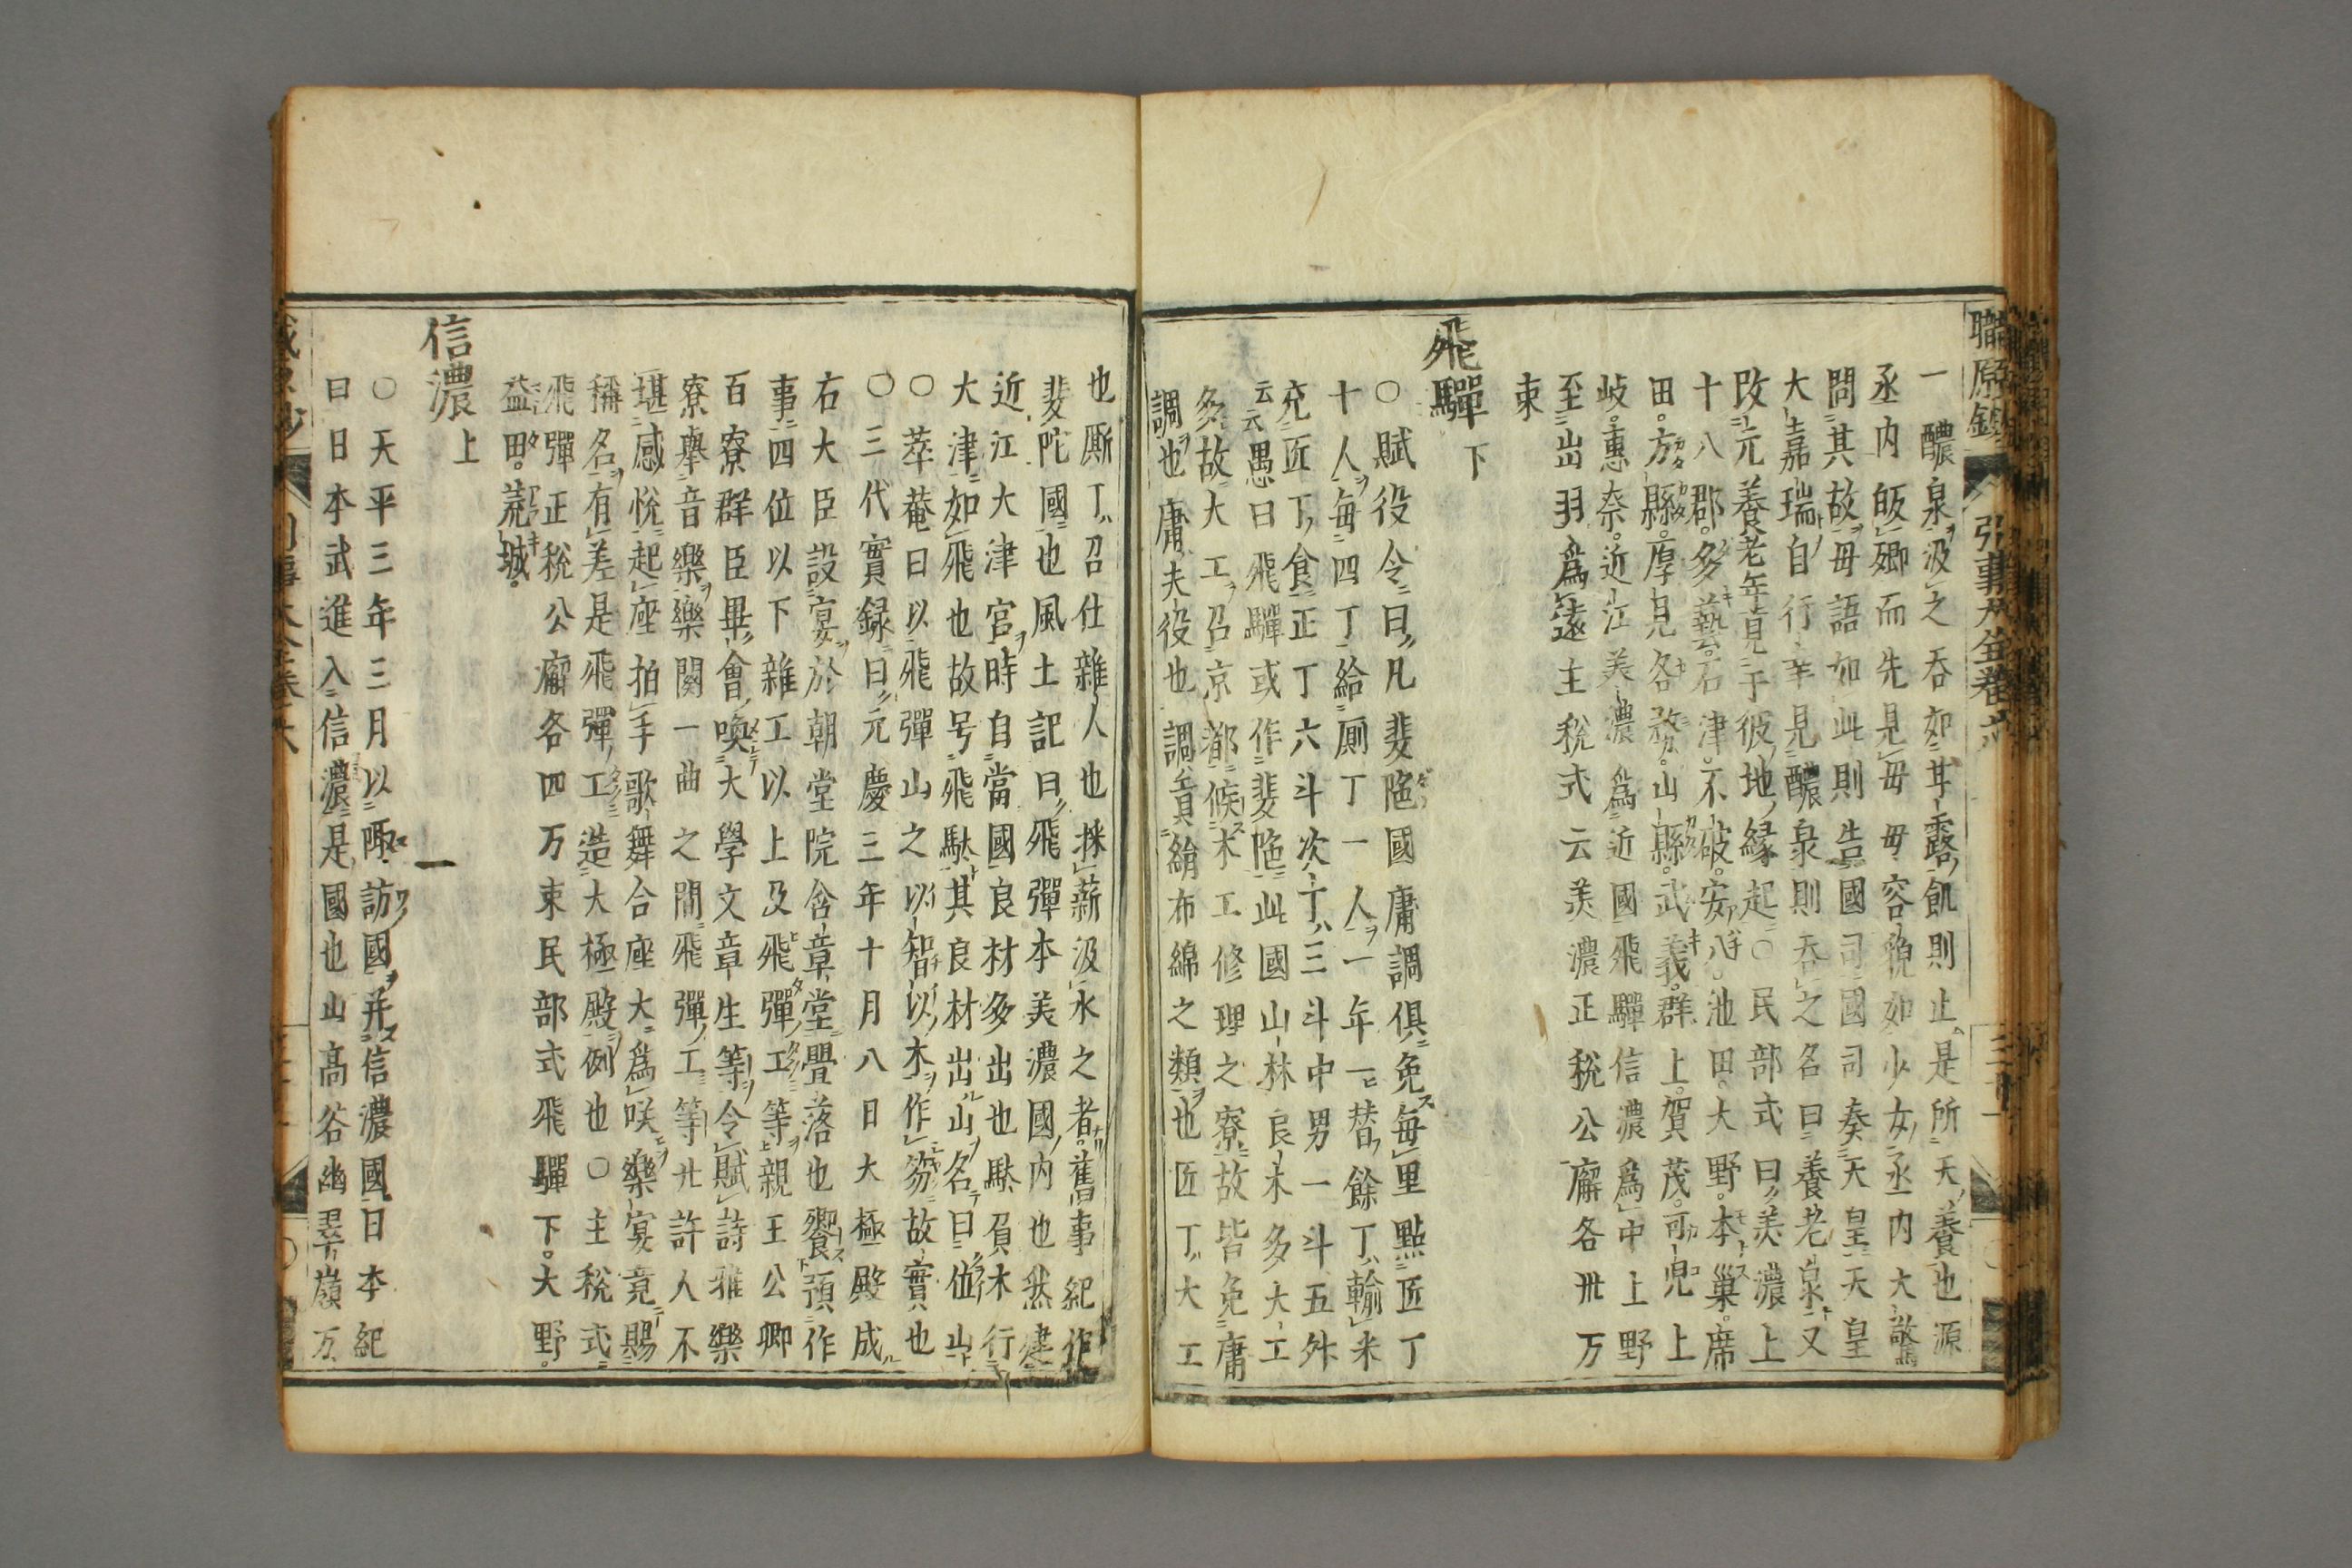 職原鈔 引事大全卷六
一醲泉ヲ汲之吞如甘露飢則止是所天養也源
丞内皈郷而先見毋毋容貌如少女丞内大驚
問其故毋語如此則告國司國司奏天皇天皇
大嘉瑞自行幸見醲泉則吞之名曰養老泉又
改元養老年見于彼地縁起○民部式曰美濃上
十八郡多藝石津不破安八池田大野本巢席
田方縣厚見各務山縣武義群上賀茂可兒土
岐惠奈近江美濃爲近國飛驒信濃爲中上野
至出羽爲遠主税式云美濃正税公廨各卅万
束
飛驒下
○賦役令曰凡斐陁國庸調俱免每里點匠丁
十人每四丁給厠丁一人一年一替餘丁輸米
充匠丁食正丁六斗次丁三斗中男一斗五舛
云云愚曰飛驒或作斐陁此國山林良木多大工
多故大工召京都候木工修理之寮故皆免庸
調也庸夫役也調貢絹布綿之類也匠丁大工
也厮丁召仕雜人也採薪汲水之者舊事紀作
斐陀國也風土記曰飛彈本美濃國内也然建
近江大津宮時自當國良材多出也駄負木行
大津如飛也故号飛駄其良材出山名曰位山
○萃菴曰以飛彈山之以智以木作笏故實也
○三代實録曰元慶三年十月八日大極殿成
右大臣設宴於朝堂院含章堂畳落也饗預作
事四位以下雜工以上及飛彈工等親王公卿
百寮群臣畢會喚大學文章生等令賦詩雅樂
寮舉音樂樂闋一曲之間飛彈工等廾許人不
堪感悦起座拍手歌舞合座大爲咲樂宴竟賜
稱名有差是飛彈工造大極殿例也○主税式
飛彈正税公廨各四万束民部式飛驒下大野
益田荒城
信濃上
○天平三年三月以陬訪國并信濃國日本紀
曰日本武進入信濃是國也山高谷幽翠嶺万